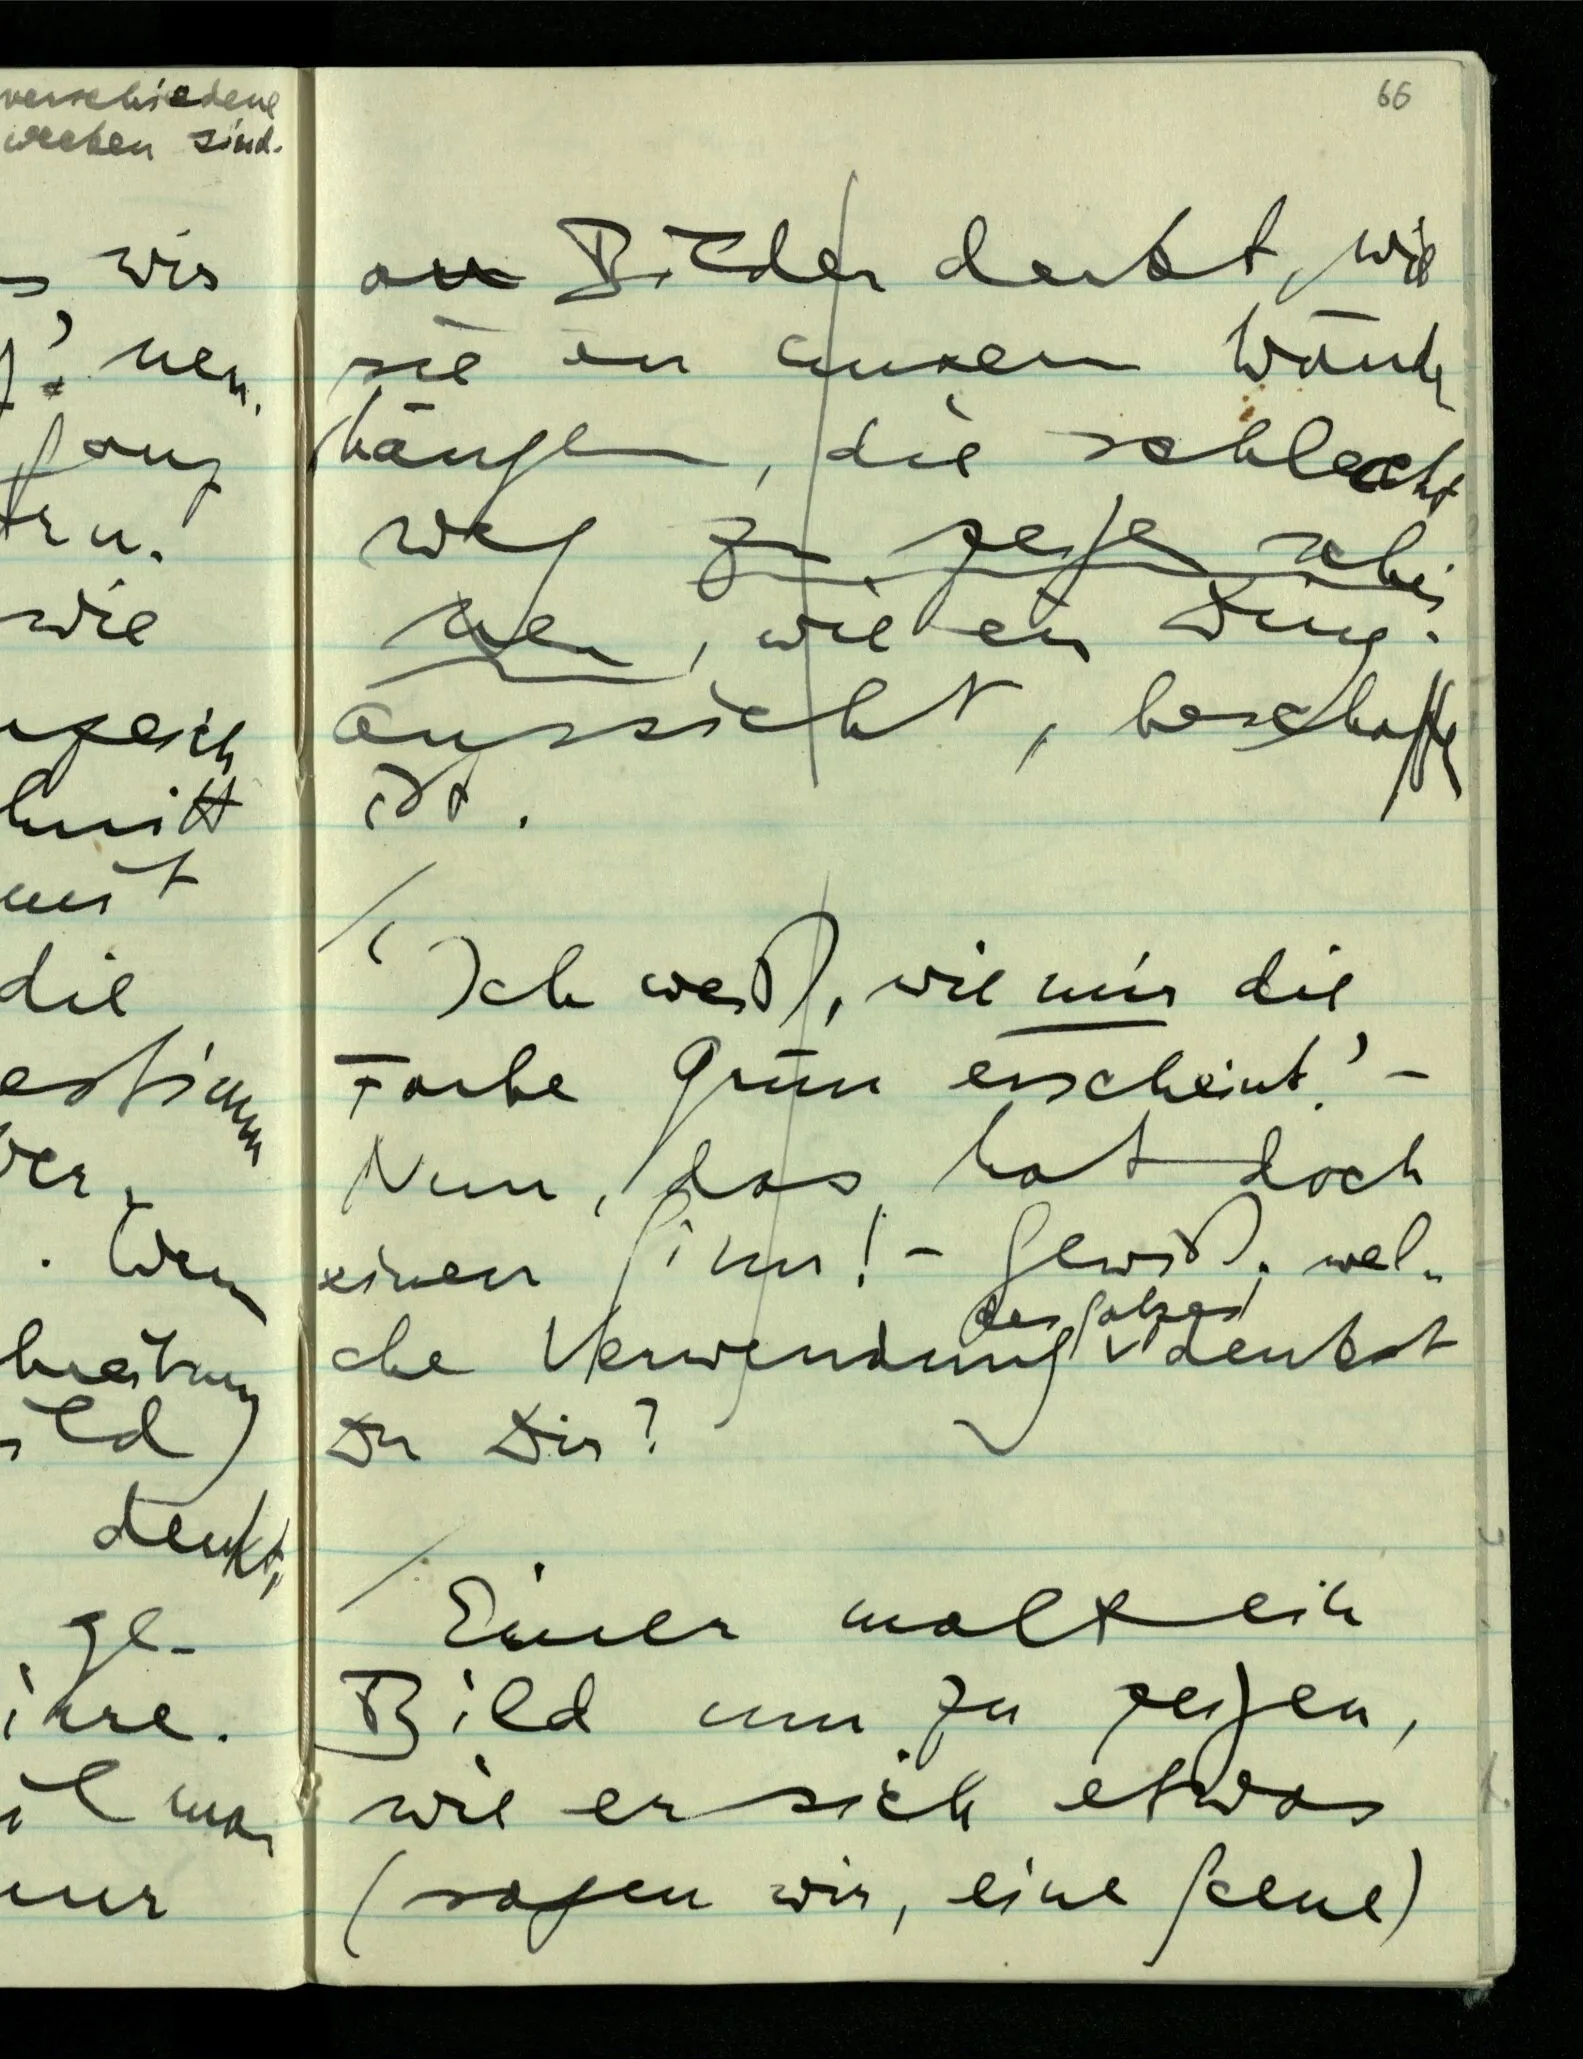 verschiedene
sind.
wir
nen.
ganz
wie
die
. Wenn
denkt,
ge-
ihre.
man
nur
66
an Bilder denkt, wie
sie an unsern Wänden
hängen, die schlecht-
weg zu zeigen schei-
nen, wie ein Ding
aussieht, beschaffen
ist.
/ ‘Ich weiß, wie mir die
Farbe Grün erscheint.’ –
Nun, das hat doch
einen Sinn! – Gewiß, wel-
des Satzes
che Verwendung denkst
Du Dir?
/ Einer malt ein
Bild um zu zeigen,
wie er sich etwas
(sagen wir, eine Scene)